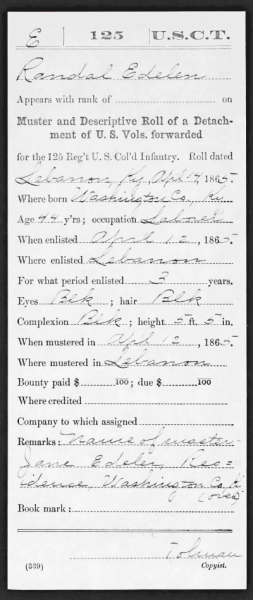 E | 125 | U.S.C.T.
Randal Edelen
Appears with rank of on
Muster and Descriptive Roll of a Detach-
ment of U. S. Vols. forwarded
for the 125 Reg't U. S. Col'd Infantry. Roll dated
Lebanon Ky, Apl 14, 1865.
Where born Washington Co., Ky
Age 44 y'rs; occupation Laborer
When enlisted April 12, 1865.
Where enlisted Lebanon
For what period enlisted 3 years.
Eyes Blk; hair Blk
Complexion Blk; height 5 ft. 5 in.
When mustered in Apl 12, 1865.
Where mustered in Lebanon
Bounty paid $ 100; due $ 100
Where credited
Company to which assigned
Remarks: Name of master
Jane Edelen, Res=
idence, Washington Co. Ky
(over)
Book mark:
Tolman
(339) Copyist.